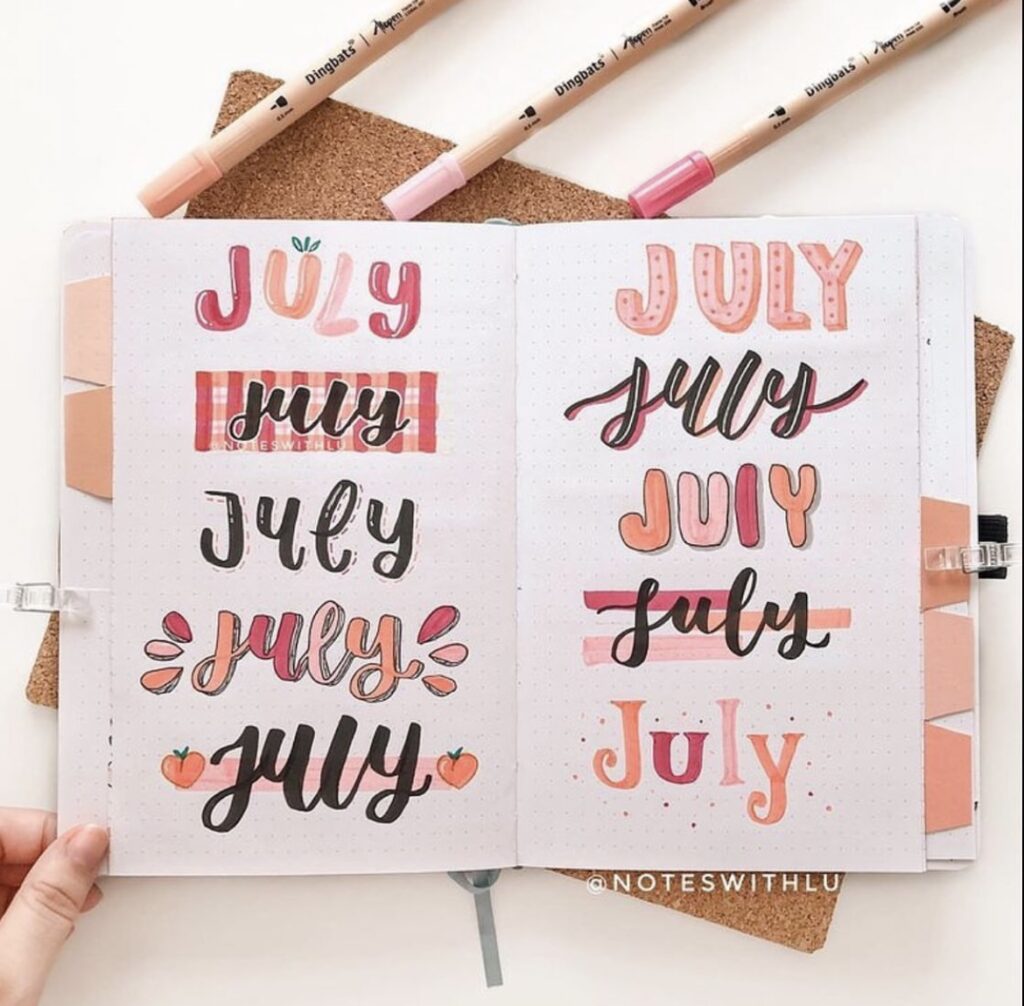 Dingbats* | Atopen
0.5 mm
Dingbats* | Atopen
0.5 mm
Dingbats* | Atopen
0.5 mm
JULY
july
@NOTESWITHLU
July
july
july
JULY
july
JULY
july
July
@NOTESWITHLU